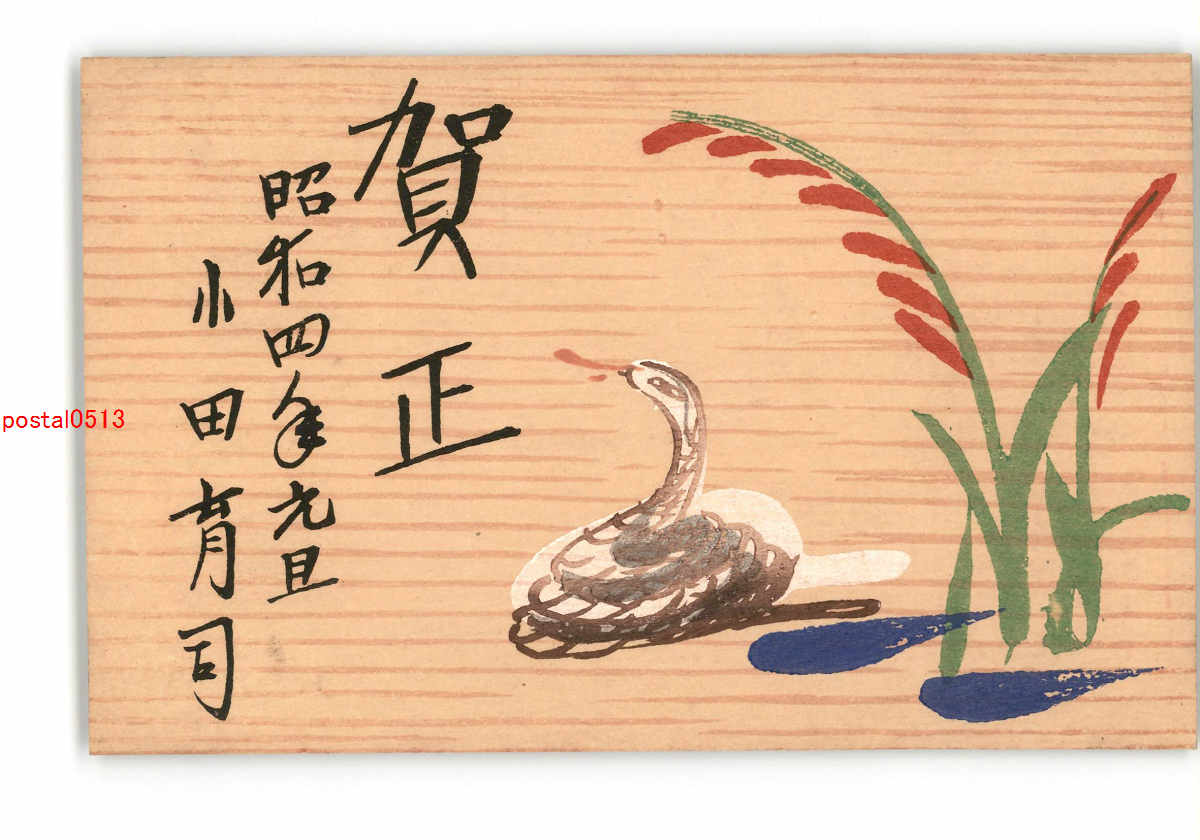 賀正
昭和四年元旦
小田育司
postal0513